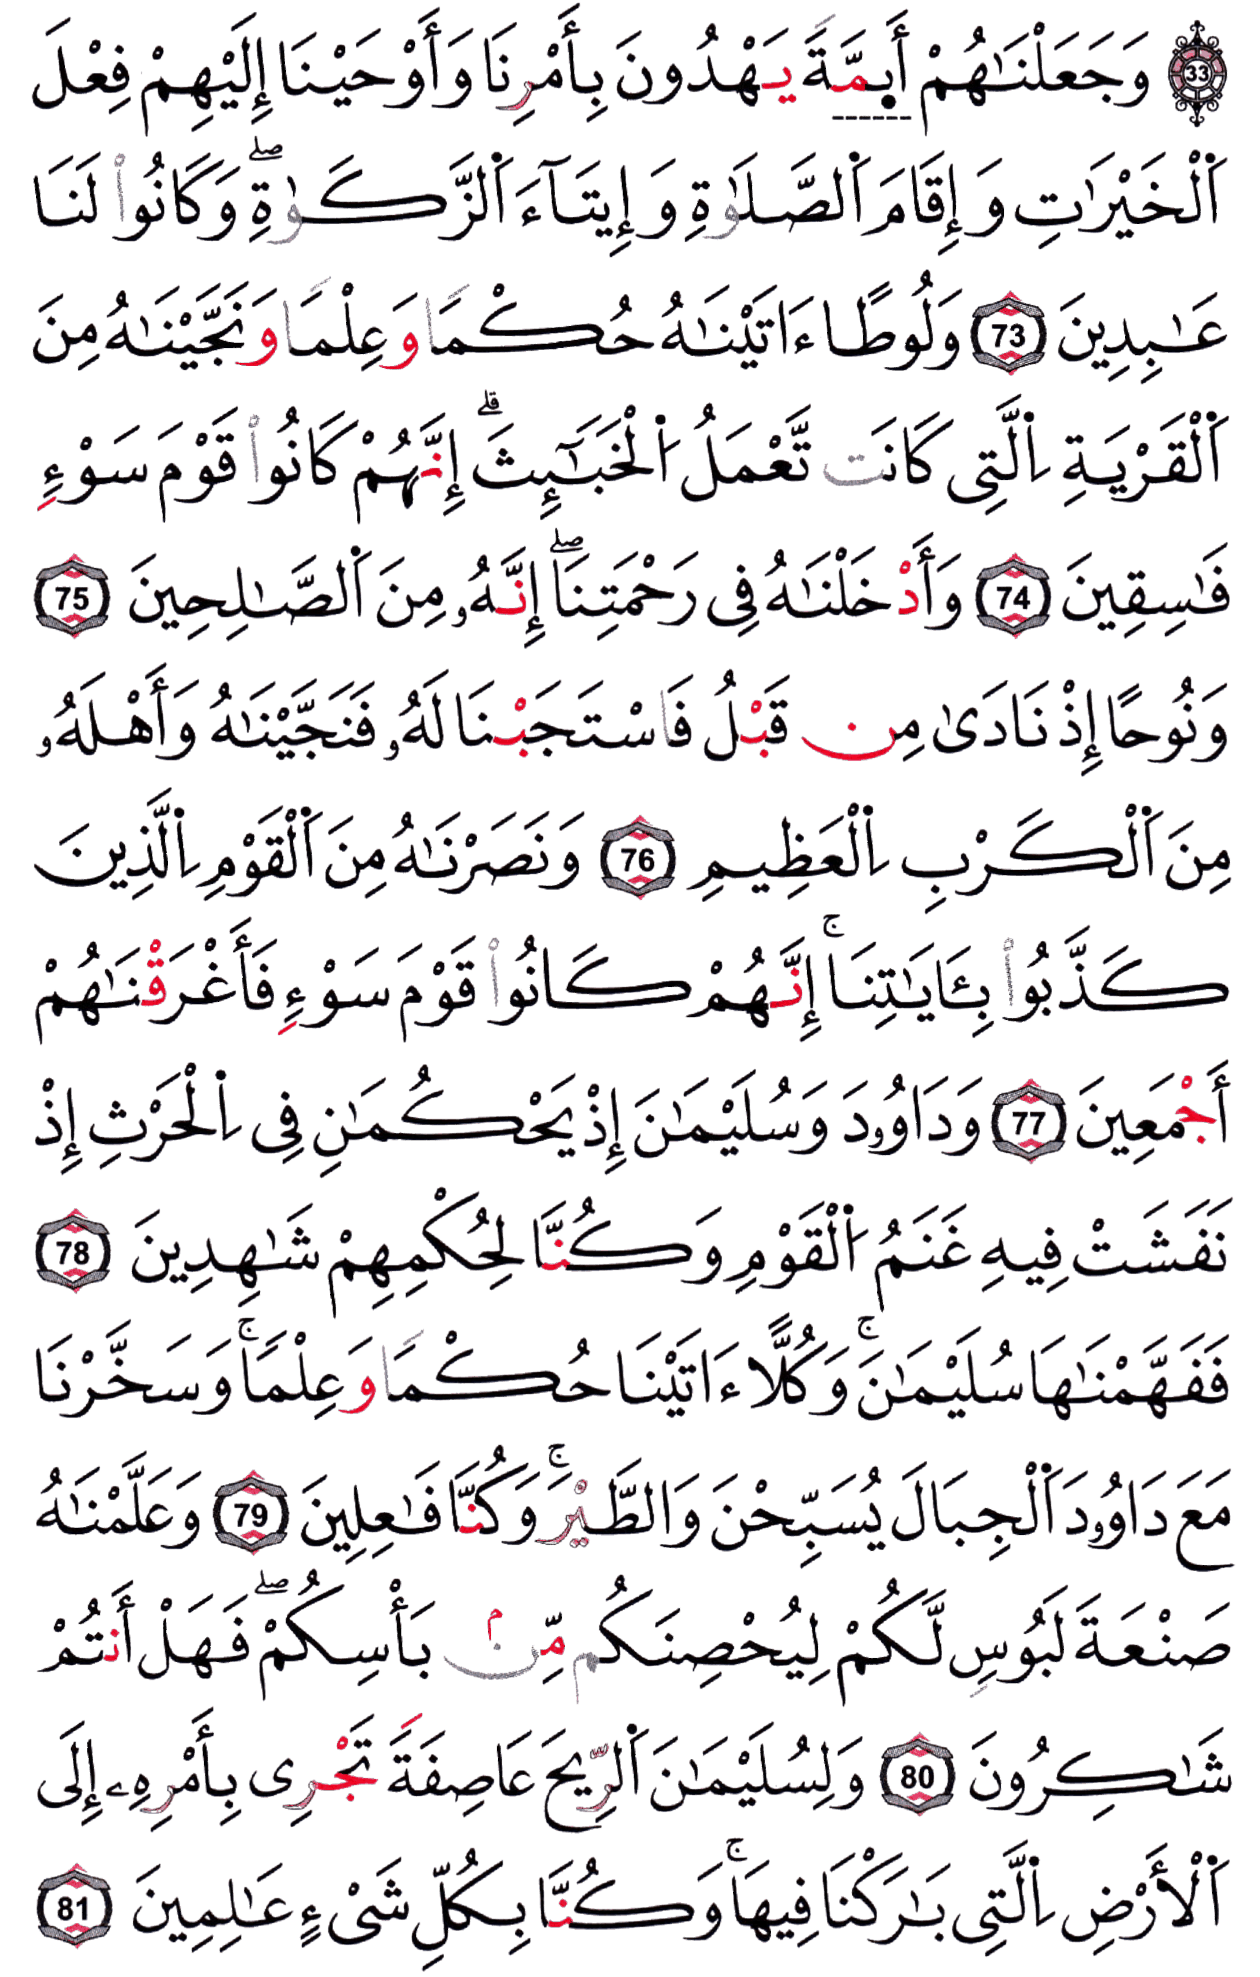 33 وَجَعَلْنَٰهُمْ أَئِمَّةً يَهْدُونَ بِأَمْرِنَا وَأَوْحَيْنَا إِلَيْهِمْ فِعْلَ
اَ۬لْخَيْرَٰتِ وَإِقَامَ اَ۬لصَّلَوٰةِ وَإِيتَآءَ اَ۬لزَّكَوٰةِۖ وَكَانُوا۟ لَنَا
عَٰبِدِينَ 73 وَلُوطًا ءَاتَيْنَٰهُ حُكْمًا وَعِلْمًا وَنَجَّيْنَٰهُ مِنَ
اَ۬لْقَرْيَةِ اِ۬لَّتِى كَانَت تَّعْمَلُ اُ۬لْخَبَٰٓئِثَۗ إِنَّهُمْ كَانُوا۟ قَوْمَ سَوْءٍ
فَٰسِقِينَ 74 وَأَدْخَلْنَٰهُ فِى رَحْمَتِنَاۖ إِنَّهُۥ مِنَ اَ۬لصَّٰلِحِينَ 75
وَنُوحًا إِذْ نَادَىٰ مِن قَبْلُ فَاسْتَجَبْنَا لَهُۥ فَنَجَّيْنَٰهُ وَأَهْلَهُۥ
مِنَ اَ۬لْكَرْبِ اِ۬لْعَظِيمِ 76 وَنَصَرْنَٰهُ مِنَ اَ۬لْقَوْمِ اِ۬لَّذِينَ
كَذَّبُوا۟ بِـَٔايَٰتِنَاۚ إِنَّهُمْ كَانُوا۟ قَوْمَ سَوْءٍ فَأَغْرَقْنَٰهُمْ
أَجْمَعِينَ 77 وَدَاوُۥدَ وَسُلَيْمَٰنَ إِذْ يَحْكُمَٰنِ فِى اِ۬لْحَرْثِ إِذْ
نَفَشَتْ فِيهِ غَنَمُ اُ۬لْقَوْمِ وَكُنَّا لِحُكْمِهِمْ شَٰهِدِينَ 78
فَفَهَّمْنَٰهَا سُلَيْمَٰنَۚ وَكُلًّا ءَاتَيْنَا حُكْمًا وَعِلْمًاۚ وَسَخَّرْنَا
مَعَ دَاوُۥدَ اَ۬لْجِبَالَ يُسَبِّحْنَ وَالطَّيْرَۚ وَكُنَّا فَٰعِلِينَ 79 وَعَلَّمْنَٰهُ
صَنْعَةَ لَبُوسٍ لَّكُمْ لِيُحْصِنَكُم مِّنۢ بَأْسِكُمْۖ فَهَلْ أَنتُمْ
شَٰكِرُونَ 80 وَلِسُلَيْمَٰنَ اَ۬لرِّيحَ عَاصِفَةً تَجْرِى بِأَمْرِهِۦ إِلَى
اَ۬لْأَرْضِ اِ۬لَّتِى بَٰرَكْنَا فِيهَاۚ وَكُنَّا بِكُلِّ شَىْءٍ عَٰلِمِينَ 81